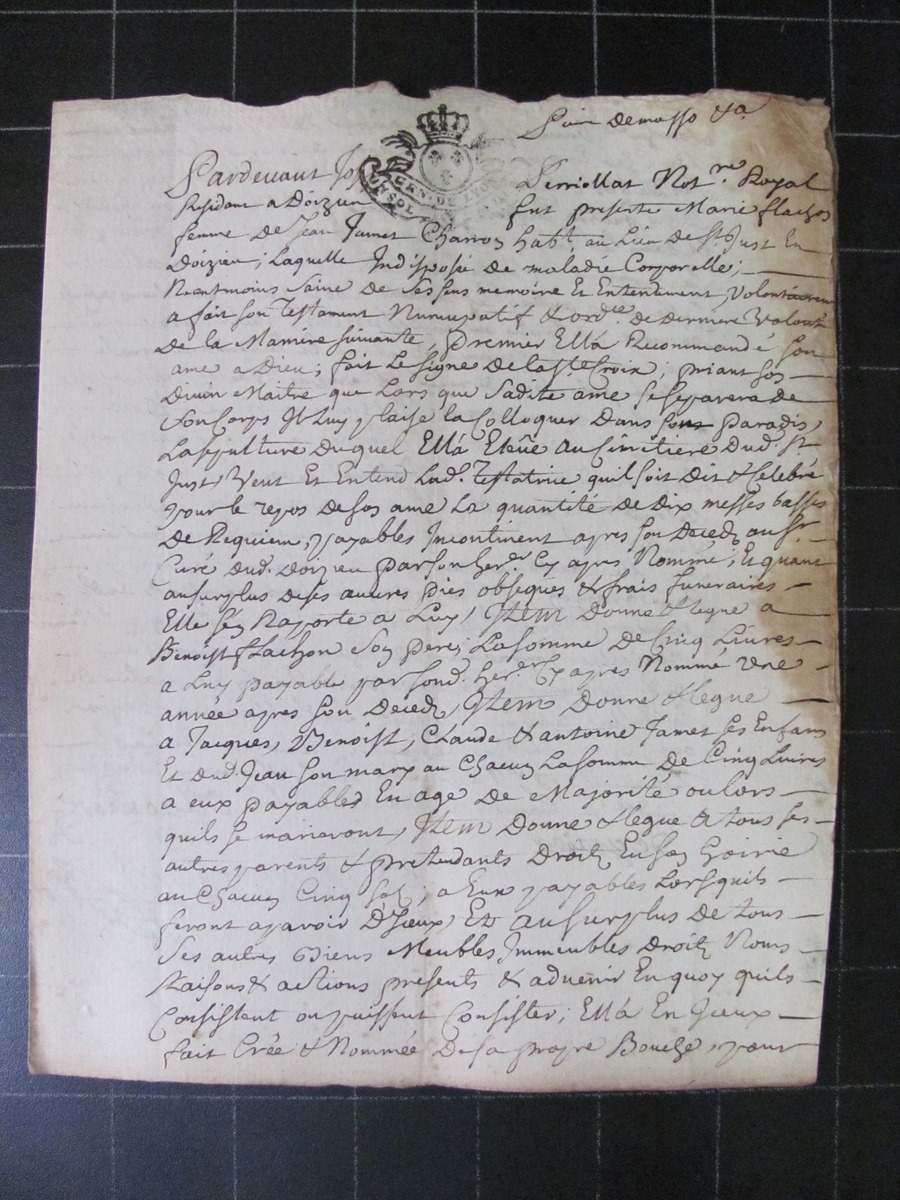 GEN. DE LYON
UN SOL
Pardevant Jos Perriollat Not.re Royal
Residant a Doizieu fut presente Marie flachon
femme De Jean Jamet Charron hab.t au Lieu De S.t Just En
Doizieu; Laquelle Indisposée de maladie Corporelle;
Neantmoins Saine de Ses sens memoire Et Entendement Volontairem
a fait son Testament Nuncupatif & ord.ce de derniere Volonté
De la Maniere suivante, premier Ella Recommandé son
ame a Dieu; fait Le signe de la S.te Croix, priant son
Divin Maitre que Lors que Sadite ame se separera de
Son Corps Il Luy plaise la Colloquer Dans son paradis,
La sepulture Duquel Ella Eleüe au Cimetiere Dud. S.t
Just, Veut Et Entend Lad. Testatrice quil soit Dit & Celebré
pour le repos de son ame La quantité de Dix messes basses
De Requiem, payables Incontinent apres son Deced au S.r
Curé Dud. Doizieu par son her.r Cy apres Nommé, Et quant
au surplus de ses œuvres pies obseques & frais funeraires
Elle s'en Raporte a Luy, Item Donne & legue a
Benoist flachon Son pere, La somme De Cinq Livres
a Luy payable par sond. her.r Cy apres Nommé Une
année apres son Deced, Item Donne & legue
a Jacques, Benoist, Claude & antoine Jamet ses Enfans
Et dud. Jean son mary au Chacun La somme De Cinq Livres
a eux payables En age De Majorité ou lors
quils se marieront, Item Donne & legue a tous ses
autres parents & pretendants Droitz En son hoirie
au Chacun Cinq sol; a Eux payables Lorsquils
feront aparoir D'Iceux, Et au surplus de tous
Ses autres Biens Meubles, Immeubles Droitz Noms
Raisons & actions presents & advenir En quoy quils
Consistent ou puissent Consister; Ella En Iceux
fait Créé & Nommée De sa propre Bouche, pour